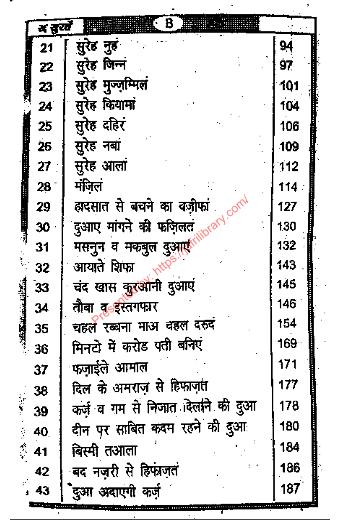 सुरतें B
21 सुरेह नुहं 94
22 सुरेह जिन्नं 97
23 सुरेह मुज़्ज़म्मिलं 101
24 सुरेह कियामां 104
25 सुरेह दहिरं 106
26 सुरेह नबां 109
27 सुरेह आलां 112
28 मंज़िलं 114
29 हादसात से बचने का वज़ीफां 127
30 दुआए मांगने की फज़िलतं 130
31 मसनुन व मकबुल दुआएं 132
32 आयाते शिफा 143
33 चंद खास कुरआनी दुआएं 145
34 तौबा व इस्तगफार 146
35 चहल रब्बना माअ चहल दरुदं 154
36 मिनटो में करोड पती बनिएं 169
37 फज़ाईले आमाल 171
38 दिल के अमराज़ से हिफाज़तं 177
39 कर्ज़ व गम से निजात दिलाने की दुआ 178
40 दीन पर साबित कदम रहने की दुआ 180
41 बिस्मी तआला 184
42 बद नज़री से हिफाज़तं 186
43 दुआ अदाएगी कर्ज़ 187